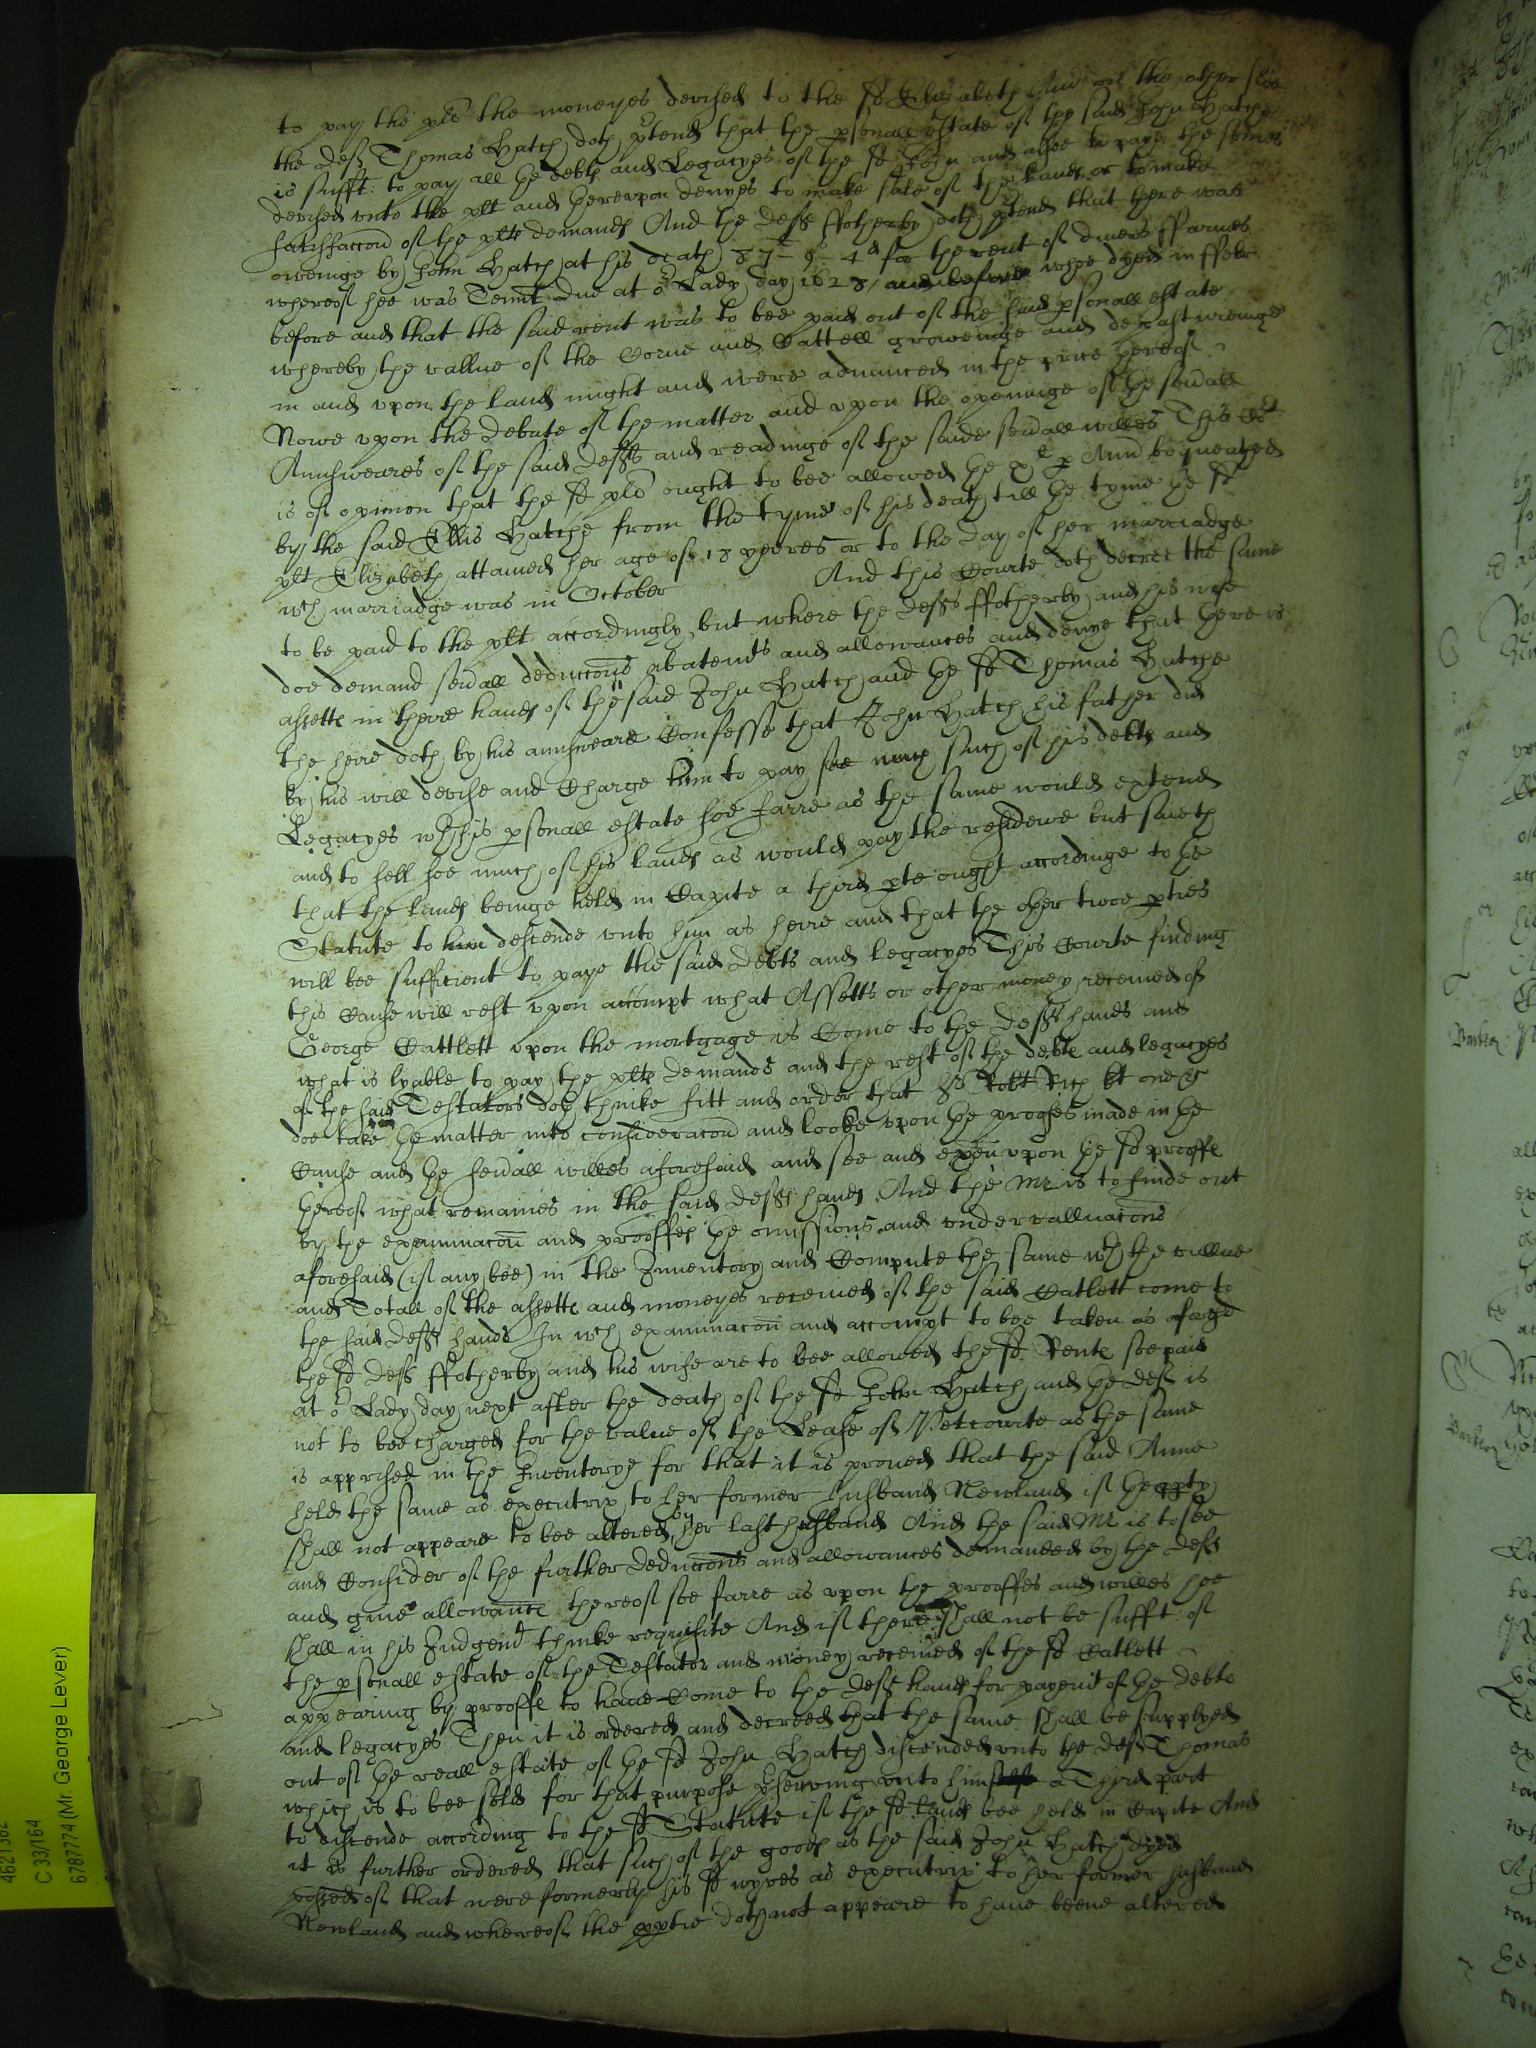 to pay the plts the moneyes devised to the sd Elizabeth And on the other side
the deft Thomas Hatch doth ptend that the psonall estate of the said John Hatche
is sufft: to pay all the debts and Legacyes of the sd John and alsoe to paye the somes
devised unto the plt and thereupon denyes to make sale of the lands or to make
satisfaccon of the plts demands And the defts ffotherby doth ptend that there was
oweinge by John Hatch at his death 87 - 9 - 4d for the rent of divers ffarmes
whereof hee was Tennt due at or Lady day 1628 whoe dyed in ffebr
before and that the said rent was to bee paid out of the said psonall estate
whereby the vallue of the Corne and Cattell groweinge and depastureinge
in and upon the land might and were advanced in the price thereof
Nowe upon the debate of the matter and upon the openinge of the sevrall
Annsweares of the said defts and readinge of the saide sevrall willes This Cort
is of opinion that the sd plts ought to bee allowed the p Ann bequeathed
by the said Ellis Hatche from the tyme of his death till the tyme the sd
plt Elizabeth attained her age of 18 yeeres or to the day of her marriadge
wch marriadge was in October And this Courte doth decree the same
to be paid to the plt accordingly, but where the defts ffotherby and his wife
doe demand sevrall deduccons abatemts and allowances and denye that there is
assetts in there hands of the said John Hatch and the sd Thomas Hatche
the heire doth by his annsweare Confesse that John Hatch his father did
by his will devise and Charge him to pay soe much such of his debts and
Legacyes wth his psonall estate soe farre as the same would extend
and to sell soe much of his lands as would pay the residewe but saieth
that the lands beinge held in Capite a third pte ought accordinge to the
Statute to descende unto him as heire and that the other twoe pties
will bee sufficient to paye the said debts and legacyes This Courte finding
this Cause will rest upon accompt what Assetts or other money received of
George Cattlett upon the mortgage is Come to the defts hands and
what is lyable to pay the plts demands and the rest of the debts and legacyes
of the said Testators doth thinke fitt and order that Sr Robt Rich kt one &c
doe take the matter into consideracon and looke upon the prooffes made in the
Cause and the sevrall willes aforesaid and see and exam upon the sd prooffs
thereof what remaines in the said defts hands And the Mr is to finde out
by the examinacon and prooffes the omissions and undervalluacons
aforesaid (if any bee) in the Inventory and Compute the same wth the vallue
and Totall of the assetts and moneyes received of the said Catlett come to
the said defts hands In wch examinacon and accompt to bee taken as aforesd
the sd defts ffotherby and his wife are to bee allowed the sd Rents soe paid
at or Lady day next after the death of the sd John Hatch and the deft is
not to bee charged for the value of the Lease of Netcourte as the same
is apprised in the Inventorye for that it is proved that the said Anne
held the same as executrix to her former husband Newland if the ppty
shall not appeare to bee altered by her last husband And the said Mr is to see
and Consider of the further deduccons and allowances demanded by the defts
and give allowance thereof soe farre as upon the prooffes and willes hee
shall in his Judgemt thinke requisite And if there shall not be sufft: of
the psonall estate of the Testator and money received of the sd Catlett
appearing by prooffe to have Come to the defts hands for payemt of the debts
and legacyes Then it is ordered and decreed that the same shall be supplyed
out of the reall estate of the sd John Hatch discended unto the deft Thomas
which is to bee sold for that purpose reserving unto himselfe a Third part
to discende according to the sd Statute if the sd Lands bee held in Capite And
it is further ordered that such of the goods as the said John Hatch dyed
possed of that were formerly his sd wyves as executrix to her former husband
Newland and whereof the pptie doth not appeare to have beene altered
4621382
C 33/164
6787774 (Mr. George Lever)